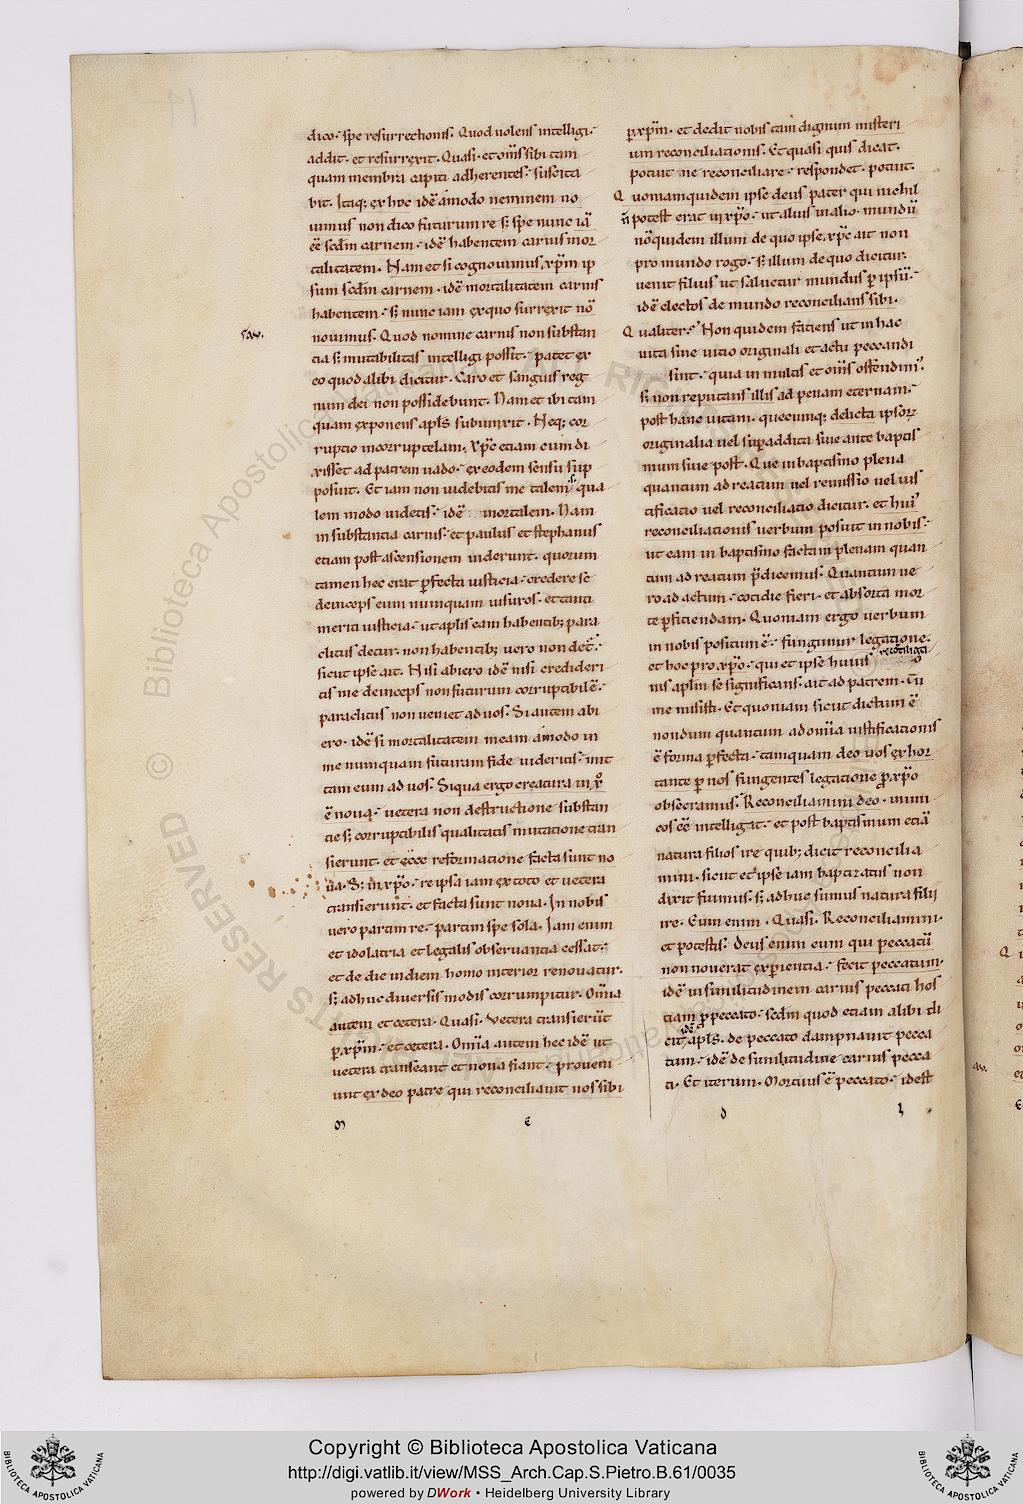 dico. spe resurrectionis. Quod uolens intelligi.
addit. et resurrexit. Quasi. et om̅s sibi tam
quam membra capiti adherentes. suscita
bit. Itaq; ex hoc ide̅ amodo neminem no
uimus non dico futurum re s; spe nunc ia̅
e̅e̅ scdm̅ carnem. ide̅ habentem carnis mor
talitatem. Nam et si cognouimus xp̅m ip
sum scdm̅ carnem. ide̅ mortalitatem carnis
habentem. s; nunc iam ex quo surrexit no̅
nouimus. Quod nomine carnis non substan
tia s; mutabilitas intelligi possit. patet ex
eo quod alibi dicitur. Caro et sanguis reg
num dei non possidebunt. Nam et ibi tam
quam exponens apl̅s subiunxit. Neq; cor
ruptio incorruptelam, xp̅c etiam cum di
xisset ad patrem uado. ex eodem sensu sup
posuit. Et iam non uidebitis me talem s. qua
lem modo uidetis. ide̅ mortalem. Nam
in substantia carnis. et paulus et stephanus
etiam post ascensionem uiderunt. quorum
tamen hec erat p̲fecta iusticia. credere se
deinceps eum numquam uisuros. et tanti
meriti iusticia. ut apl̅is eam habentib; para
clitus detur. non habentib; uero non det̅.
sicut ipse ait. Nisi abiero ide̅ nisi credideri
tis me deinceps non futurum corruptibile̅.
paraclitus non ueniet ad uos. Si autem abi
ero. ide̅ si mortalitatem meam amodo in
me numquam futuram fide uideritis. mit
tam eum ad uos. Siqua ergo creatura in xp̅o
e̅ noua. uetera non destructione substan
tie s; corruptibilis qualitatis mutatione tran
sierunt. et ecce reformatione facta sunt no
ua. S; in xp̅o. re ipsa iam ex toto et uetera
transierunt. et facta sunt noua. In nobis
uero partim re. partim spe sola. Iam enim
et idolatria et legalis obseruantia cessat.
et de die in diem homo interior renouatur.
s; adhuc diuersis modis corrumpitur. Om̅ia
autem et cetera. Quasi. Vetera transieru̅t
p̲ xp̅m. et cetera. Om̅ia autem hec ide̅ ut
uetera transeant et noua fiant. proueni
unt ex deo patre qui reconciliauit nos sibi
p̲ xp̅m. et dedit nobis tam dignum misteri
um reconciliationis. Et quasi quis dicat.
potuit ne reconciliare. respondet. potuit.
Quoniamquidem ipse deus pater qui nichil
n̅ potest erat in xp̅o. ut alius in alio. mundu̅
no̅ quidem illum de quo ipse xp̅c ait non
pro mundo rogo. s; illum de quo dicitur.
uenit filius ut saluetur mundus p̲ ipsu̅.
ide̅ electos de mundo reconcilians sibi.
Qualiter. Non quidem faciens ut in hac
uita sine uitio originali et actu peccandi
sint. quia in multis et om̅s offendim'.
s; non reputans illis ad penam eternam.
post hanc uitam. quecumq; delicta ipsoꝝ
originalia uel sup̲addita siue ante baptis
mum siue post. Que in baptismo plena
quantum ad reatum uel remissio uel ius
tificatio uel reconciliatio dicitur. et hui'
reconciliationis uerbum posuit in nobis.
ut eam in baptismo factam plenam quan
tum ad reatum p̅dicemus. Quantum ue
ro ad actum. cotidie fieri. et absorta mor
te p̲ficiendam. Quoniam ergo uerbum
in nobis positum e̅. fungimur legatione.
et hoc pro xp̅o. qui et ipse huius reco̅ciliati
nis apl̅m se significans. ait ad patrem. Tu
me misisti. Et quoniam sicut dictum e̅
nondum quantum ad om̅ia iustificationis
e̅ forma p̲fecta. tamquam deo uos exhor
tante p̲ nos fungentes legatione p̲ xp̅o
obsecramus. Reconciliamini deo. inim
cos e̅e̅ intelligat. et post baptismum etia̅
natura filios ire quib; dicit reconcilia
mini. sicut et ipse iam baptizatus non
dixit fuimus. s; adhuc sumus natura filii
ire. Eum enim. Quasi. Reconciliamini.
et potestis. Deus enim eum qui peccatu̅
non nouerat exp̲ientia. fecit peccatum.
ide̅ in similitudinem carnis peccati hos
tiam p̲ peccato. scdm̅ quod etiam alibi di
cit ide̅ apl̅s. de peccato dampnauit pecca
tum. ide̅ de similitudine carnis pecca
ti. Et iterum. Mortuus e̅ peccato. idest
Copyright © Biblioteca Apostolica Vaticana
http://digi.vatlib.it/view/MSS_Arch.Cap.S.Pietro.B.61/0035
powered by DWork • Heidelberg University Library
BIBLIOTECA APOSTOLICA VATICANA
BIBLIOTECA APOSTOLICA VATICANA